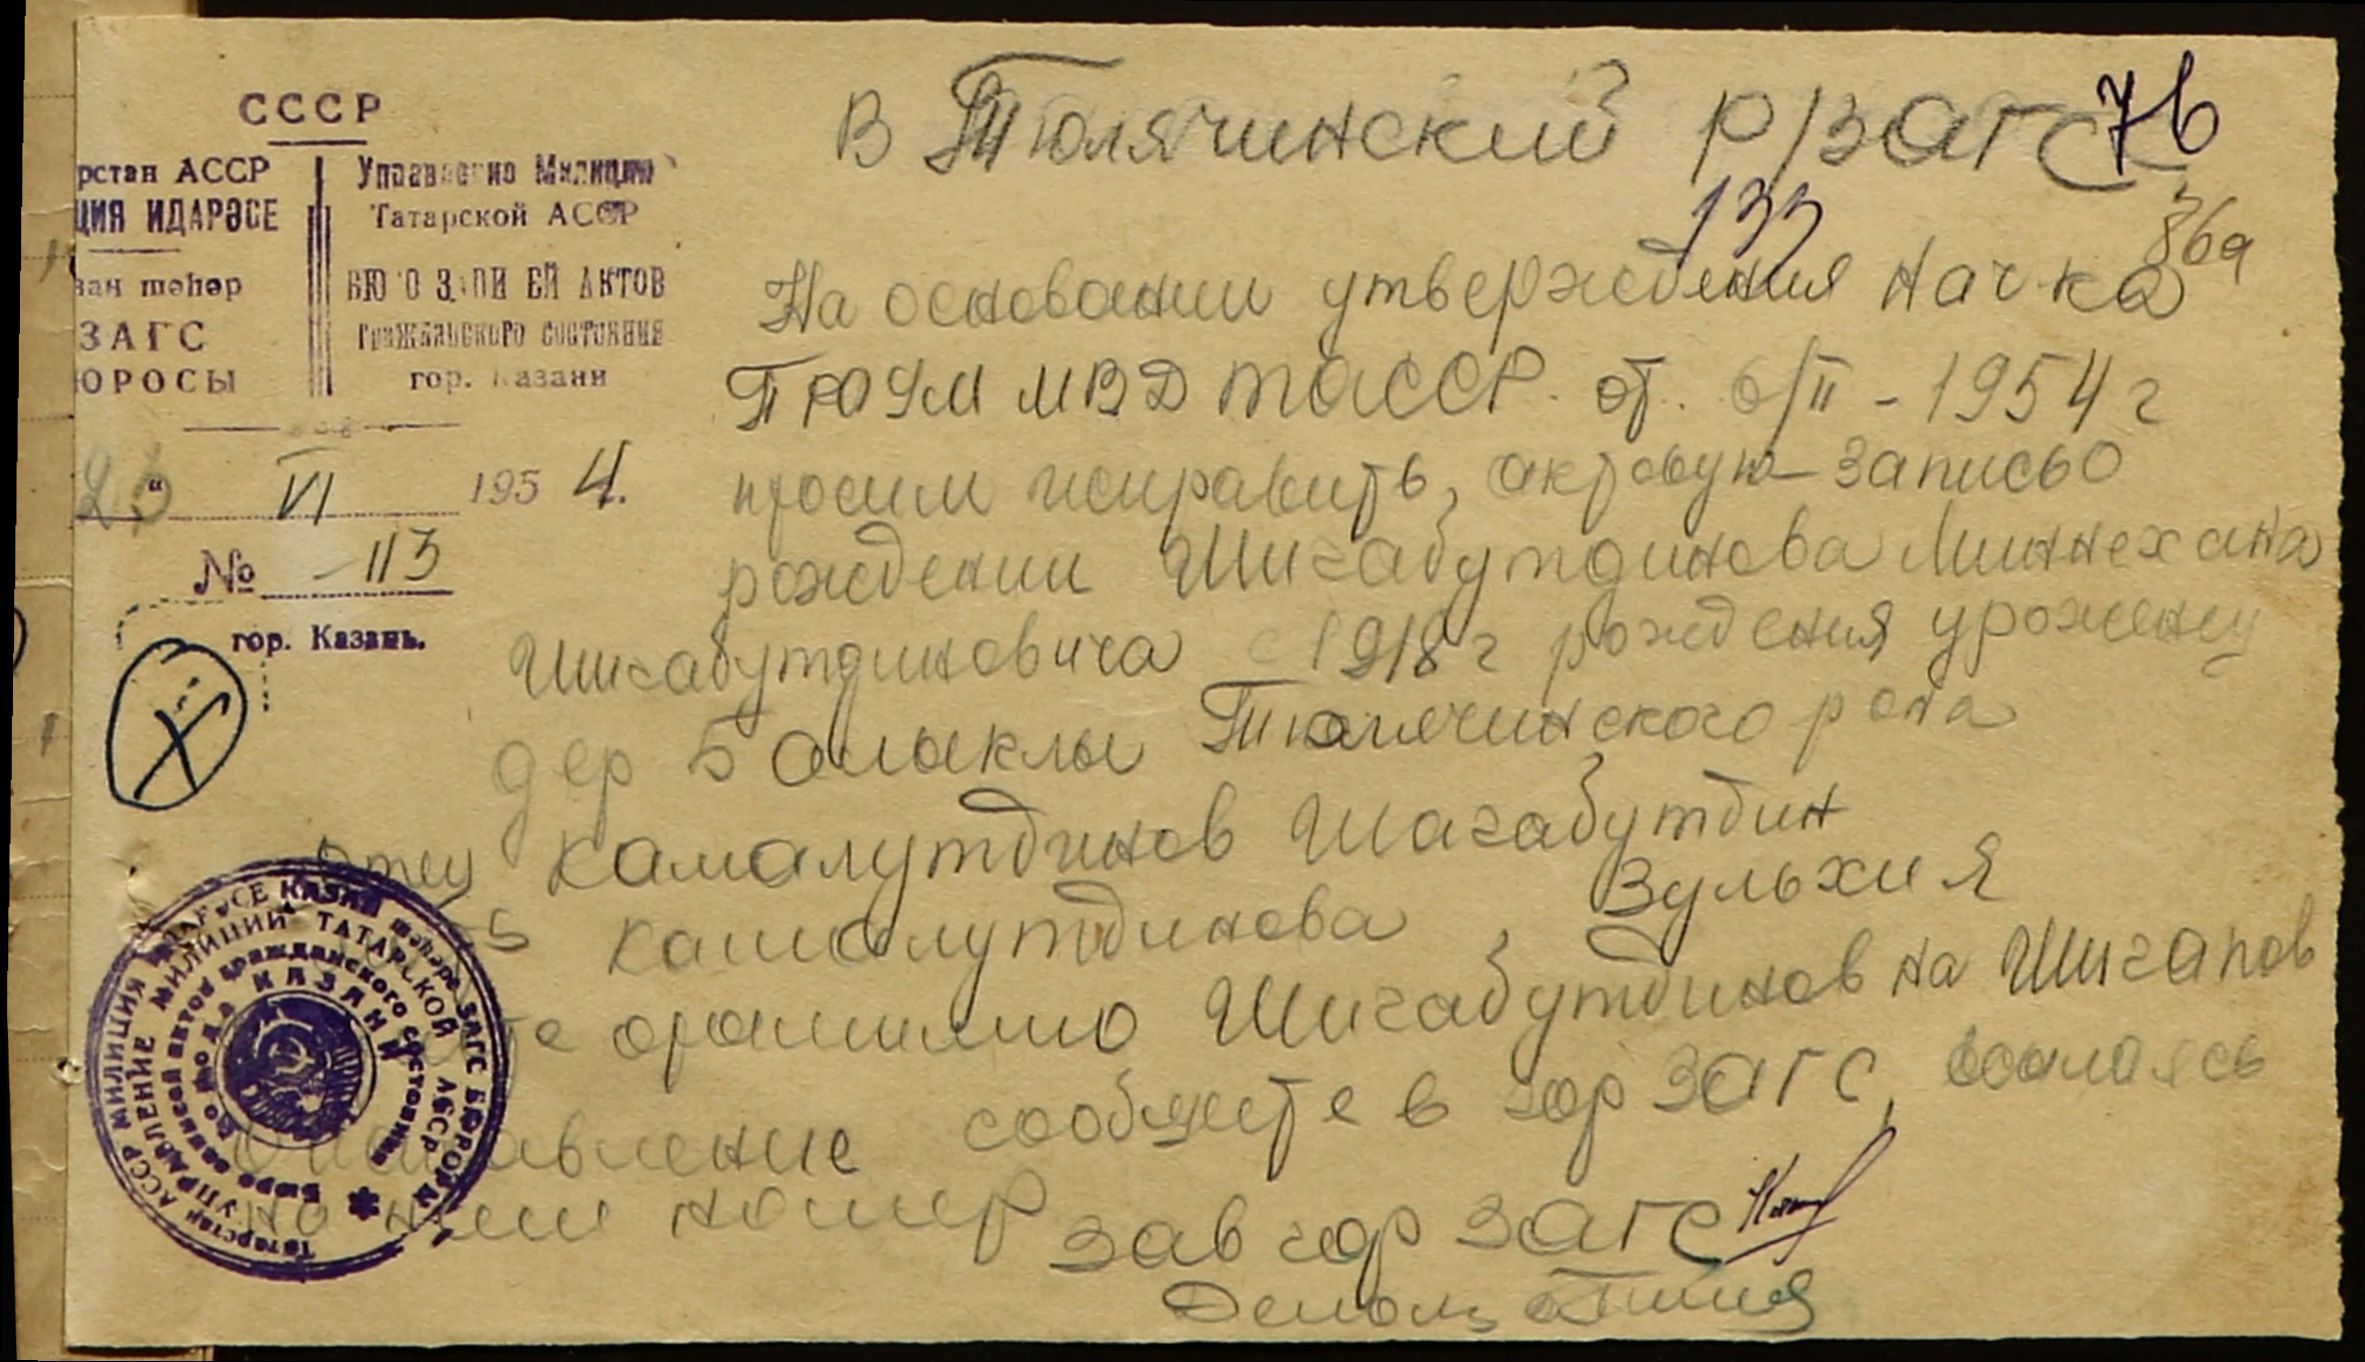 СССР
рстан АССР
ЦИЯ ИДАРӘСЕ
зан шәһәр
ЗАГС
ЮРОСЫ
Управление Милиции
Татарской АССР
БЮРО ЗАПИСЕЙ АКТОВ
гражданского состояния
гор. Казани
" VI 1954.
№ 113
гор. Казань.
В Тюлячинский р/загс 76
133
86а
На основании утверждения нач-ка
МВД ТАССР. от. 6/II - 1954 г
просим исправить, актовую запись о
рождении Шигабутдинова Миннехана
Шигабутдиновича с 1918 г рождения урожену
дер Балыклы Тюлячинского рона
отец Камалутдинов Шагабутдин
Камалутдинова Зульхия
фамилию Шигабутдинов на Шигапов
сообщите в гор ЗАГС, ссылаясь
на наш номер
зав гор ЗАГС
Татарстан АССР МИЛИЦИЯ ИДАРӘСЕ КАЗАН шәһәре ЗАГС БЮРОСЫ
УПРАВЛЕНИЕ МИЛИЦИИ ТАТАРСКОЙ АССР
Бюро записей актов гражданского состояния
города КАЗАНИ